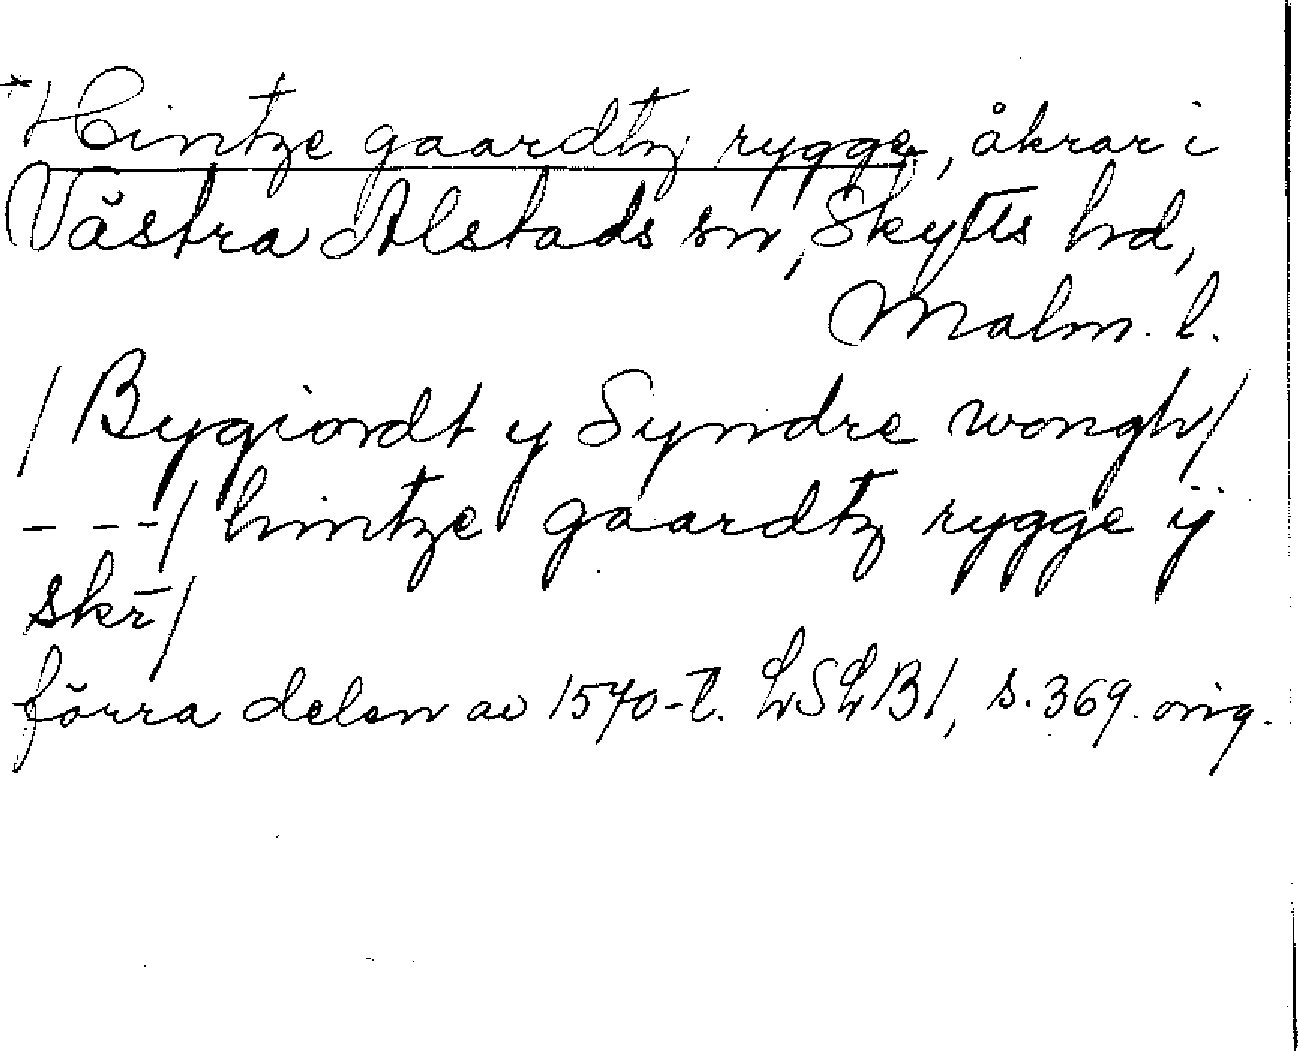 *Hintze gaardtz rygge, åkrar i
Västra Alstads sn, Skytts hd,
Malm. l.
/Bygiordt y Syndre wongh/
- - -/ hintze gaardtz rygge ÿ
skr̄/
förra delen av 1570-t. LSLB1, s. 369. orig.